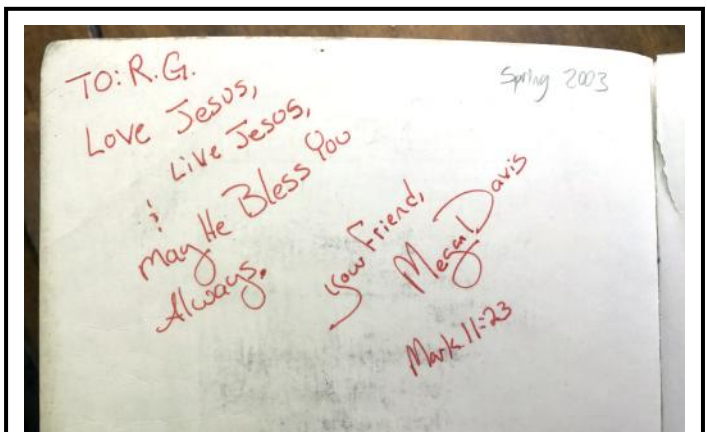 TO: R.G.
Spring 2003
Love Jesus,
& Live Jesus,
May He Bless You
Always.
your Friend,
Megan Davis
Mark 11:23